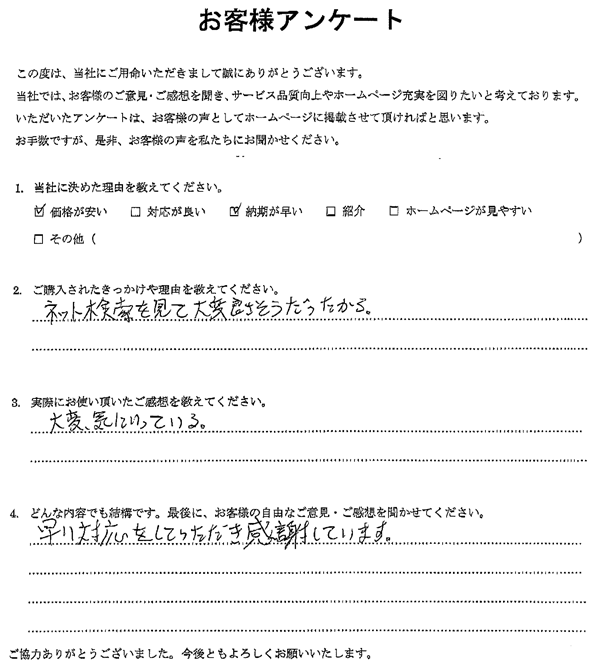 お客様アンケート
この度は、当社にご用命いただきまして誠にありがとうございます。
当社では、お客様のご意見・ご感想を聞き、サービス品質向上やホームページ充実を図りたいと考えております。
いただいたアンケートは、お客様の声としてホームページに掲載させて頂ければと思います。
お手数ですが、是非、お客様の声を私たちにお聞かせください。
1. 当社に決めた理由を教えてください。
☑ 価格が安い □ 対応が良い ☑ 納期が早い □ 紹介 □ ホームページが見やすい
□ その他 ( )
2. ご購入されたきっかけや理由を教えてください。
ネット検索を見て大変良さそうだったから。
3. 実際にお使い頂いたご感想を教えてください。
大変、気にいっている。
4. どんな内容でも結構です。最後に、お客様の自由なご意見・ご感想を聞かせてください。
早い対応をしていただき感謝しています。
ご協力ありがとうございました。今後ともよろしくお願いいたします。